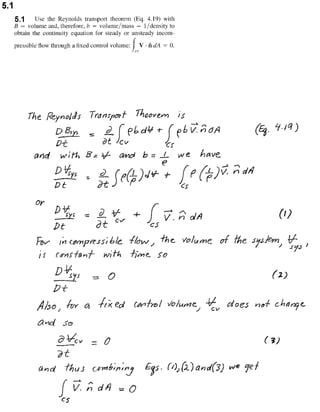 5.1
5.1 Use the Reynolds transport theorem (Eq. 4.19) with
B = volume and, therefore, b = volume/mass = 1/density to
obtain the continuity equation for steady or unsteady incom-
pressible flow through a fixed control volume: ∫cv V · n̂ dA = 0.
The Reynolds Transport Theorem is
DBsys/Dt = ∂/∂t ∫cv ρb dV̶ + ∫cs ρb V⃗·n̂ dA (Eq. 4.19)
and with B = V̶ and b = 1/ρ we have
DV̶sys/Dt = ∂/∂t ∫cv ρ(1/ρ) dV̶ + ∫cs ρ(1/ρ) V⃗·n̂ dA
or
DV̶sys/Dt = ∂/∂t V̶cv + ∫cs V⃗·n̂ dA (1)
For incompressible flow, the volume of the system, V̶sys,
is constant with time so
DV̶sys/Dt = 0 (2)
Also, for a fixed control volume, V̶cv does not change
and so
∂V̶cv/∂t = 0 (3)
and thus combining Eqs. (1),(2) and (3) we get
∫cs V⃗·n̂ dA = 0